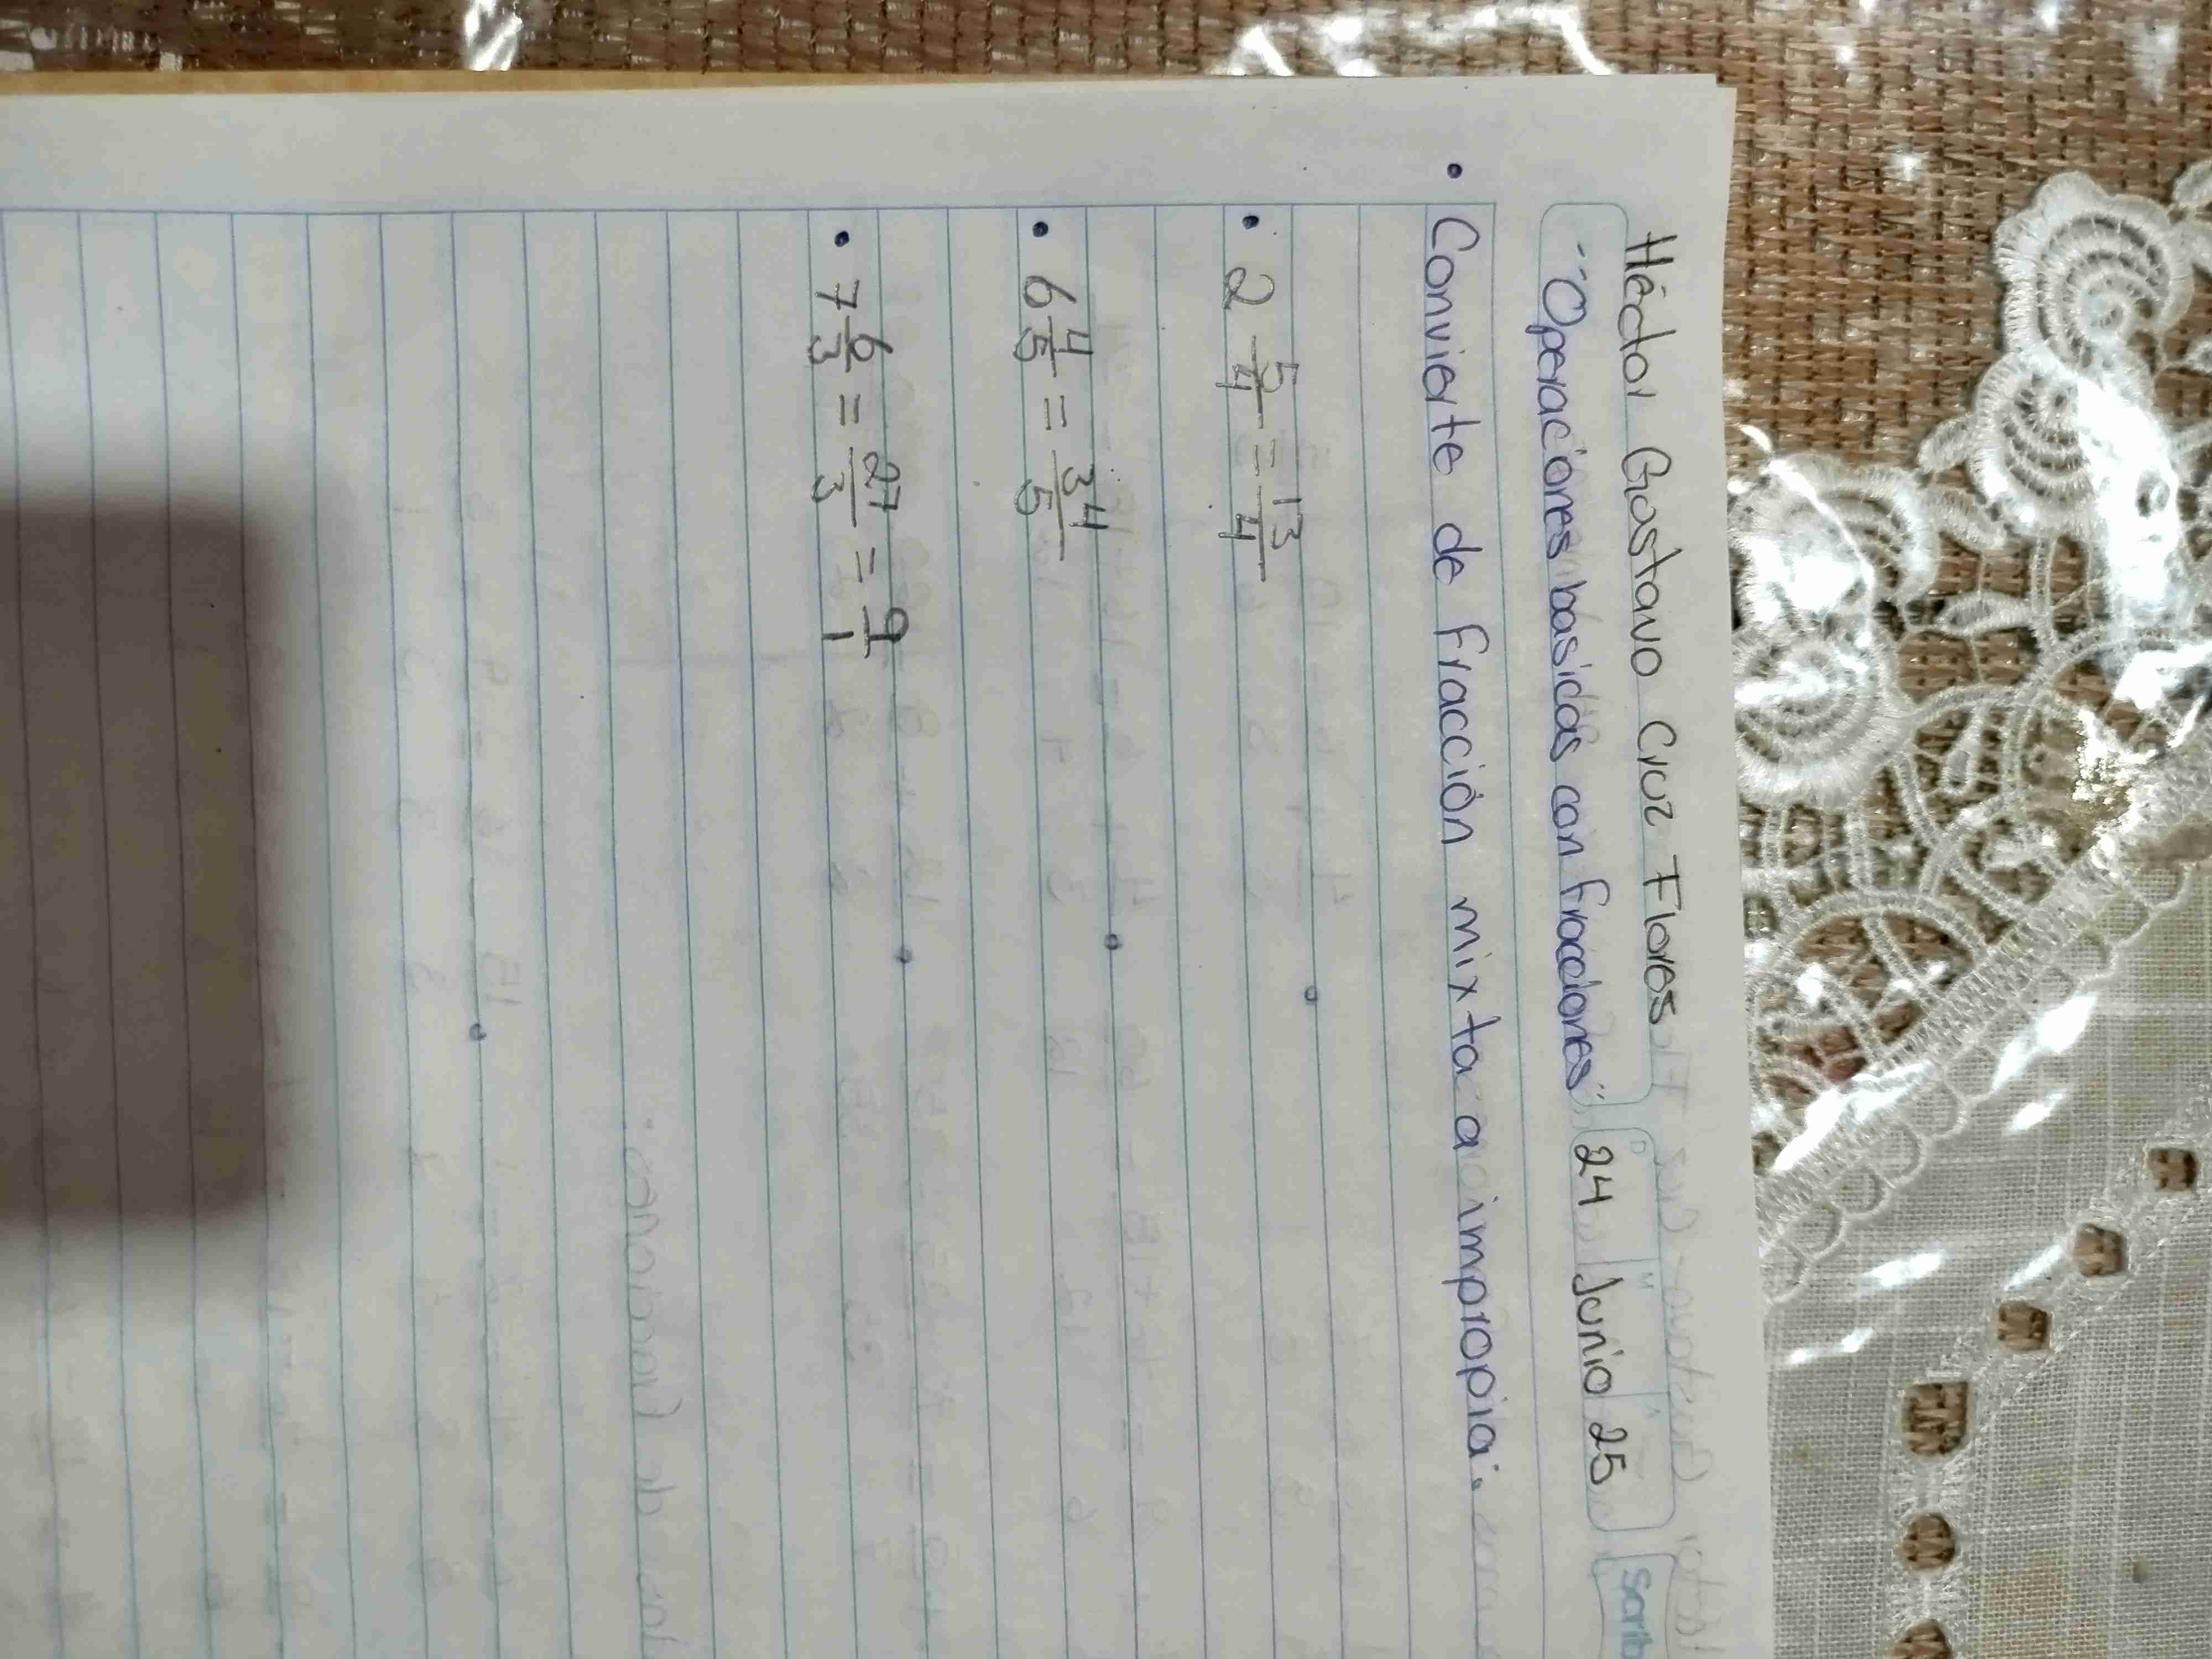 Héctor Gustavo Cruz Flores
"Operaciones basicas con fracciones" 24 Junio 25
D M A
Scrib
• Convierte de fracción mixta a impropia:
• 2 5/4 = 13/4
• 6 4/5 = 34/5
• 7 6/3 = 27/3 = 9/1